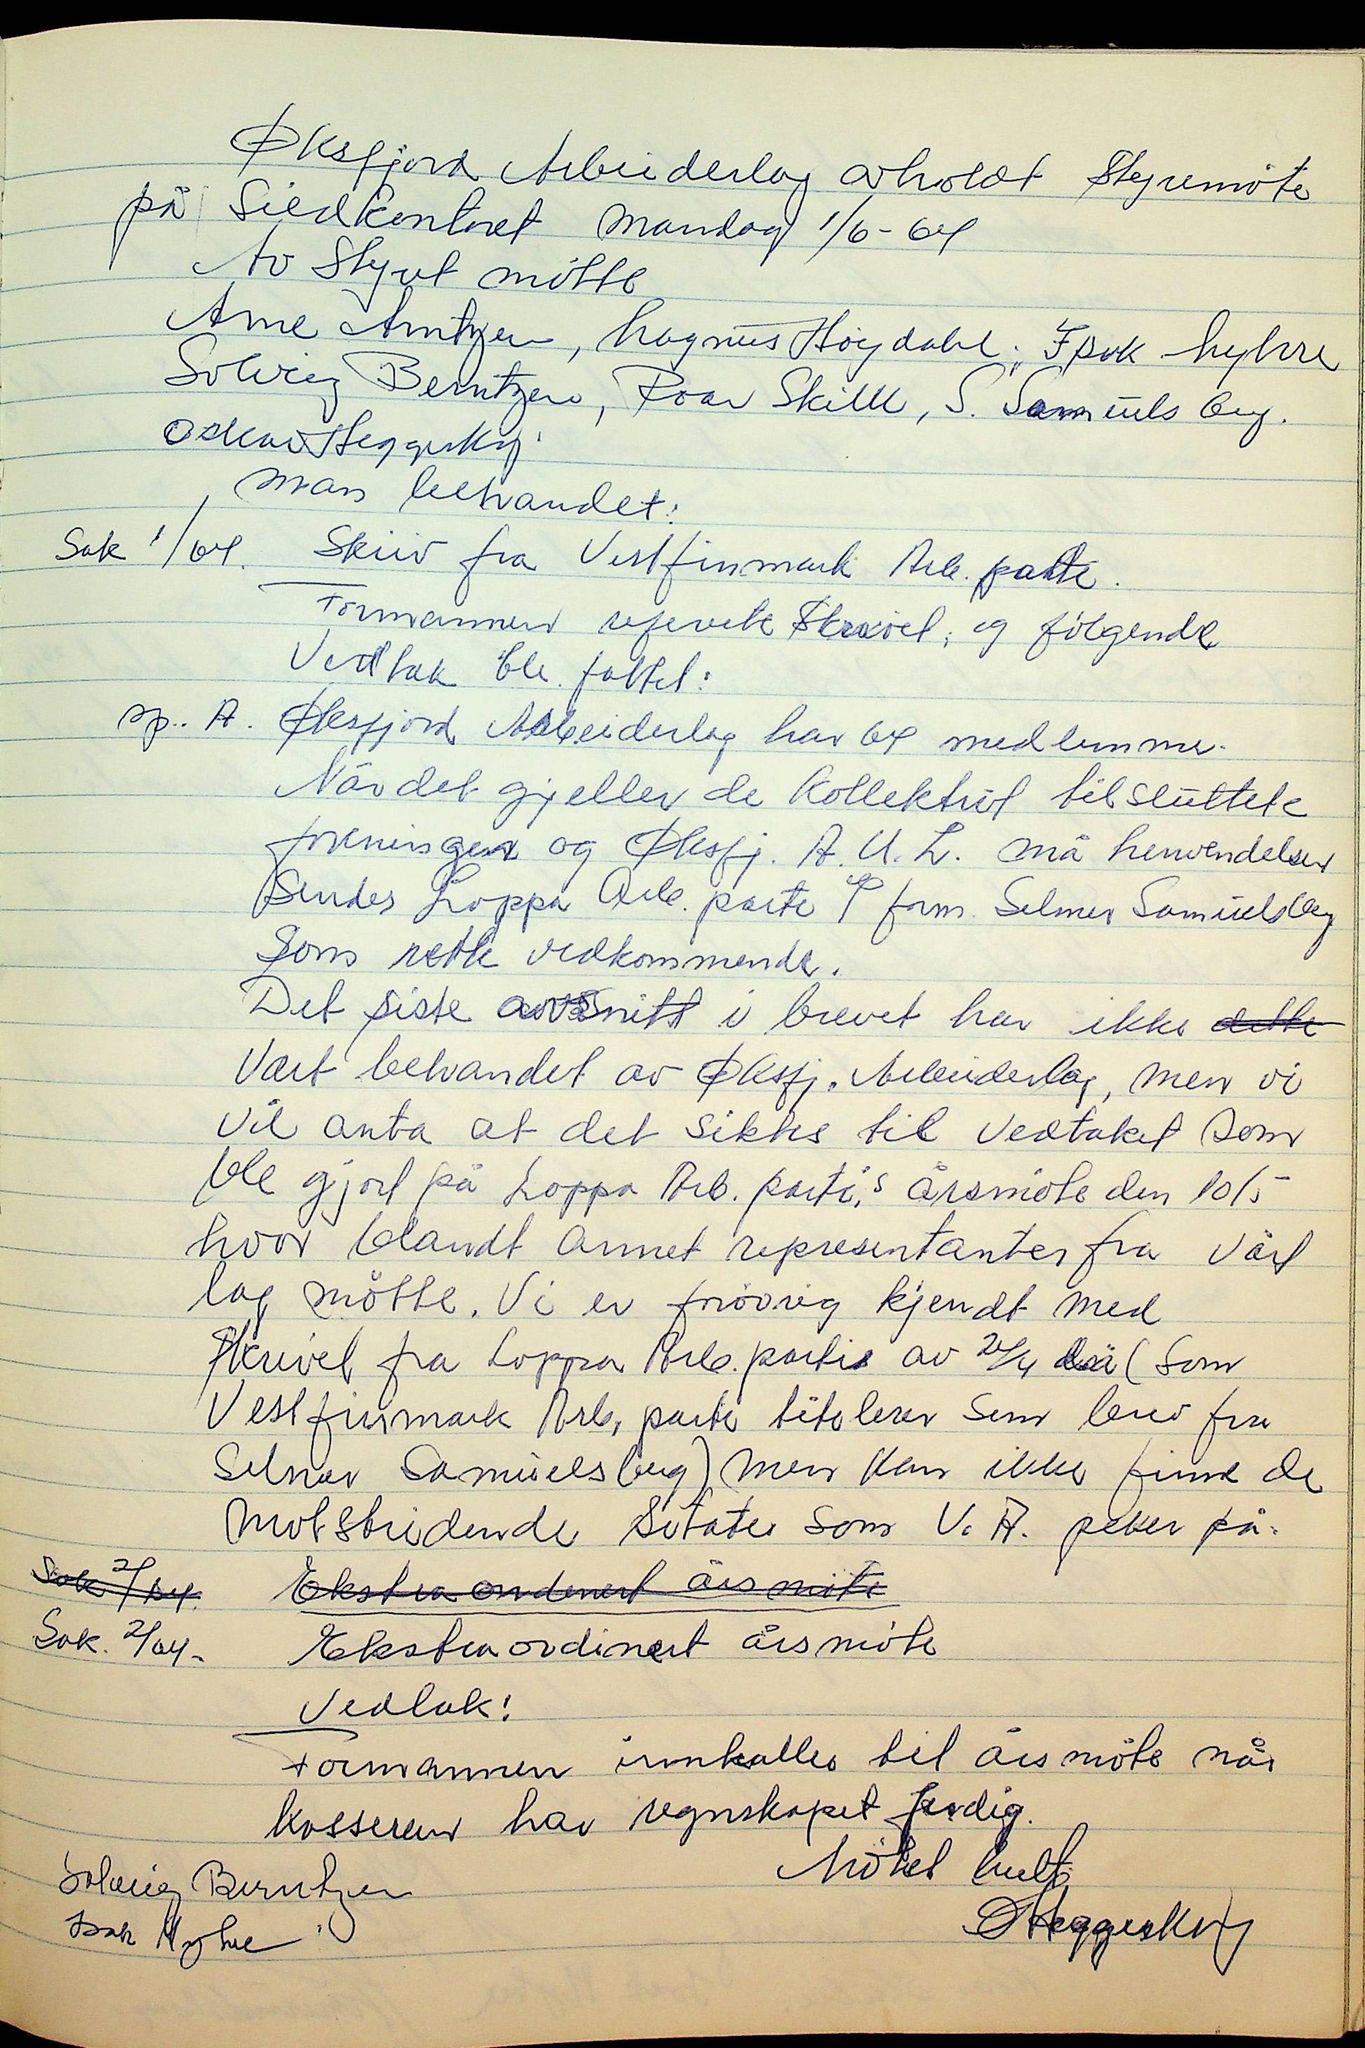 Øksfjord Arbeiderlag avholdt Styremöte
på Sildkontoret mandag 1/6-64
Av Styret mötte
Arne Arntzen, Magnus Höydahl, Isak Myhre
Solveig Berntzen, Roar Skille, S. Samuelsberg.
Oskar Heggeskog
Man behandlet:
Sak 1/64. Skriv fra Vestfinmark Arb. parti.
Formannen refererte Skrivet, og fölgende
Vedtak ble fattet:
sp. A. Øksfjord Arbeiderlag har 64 medlemmer.
Når det gjeller de Kollektivt tilsluttete
foreninger og Øksfj. A.U.L. må henvendelsen
Sendes Loppa Arb. parti form. Selmer Samuelsberg
Som rette vedkommende.
Det siste avsnitt i brevet har ikke dette
Vært behandlet av Øksfj. Arbeiderlag, men vi
vil anta at det siktes til Vedtaket som
ble gjort på Loppa Arb. parti's årsmöte den 10/5
hvor blandt annet representanter fra vårt
lag mötte. Vi er forövrig kjendt med
Skrivet fra Loppa Arb. partis av 24/4 då (som
Vestfinmark Arb. parti titelerer som brev fra
Selmer Samuelsberg) men kan ikke finne de
motstridende Sitater som V. A. peker på.
Sak 2/64. Ekstraordenert årsmöte
Sak. 2/64. Ekstraordinert årsmöte
Vedtak!
Formannen innkaller til årsmöte når
Kasseren har regnskapet ferdig.
Mötet hevet
Solveig Berntzen
OHeggeskog
Isak Myhre